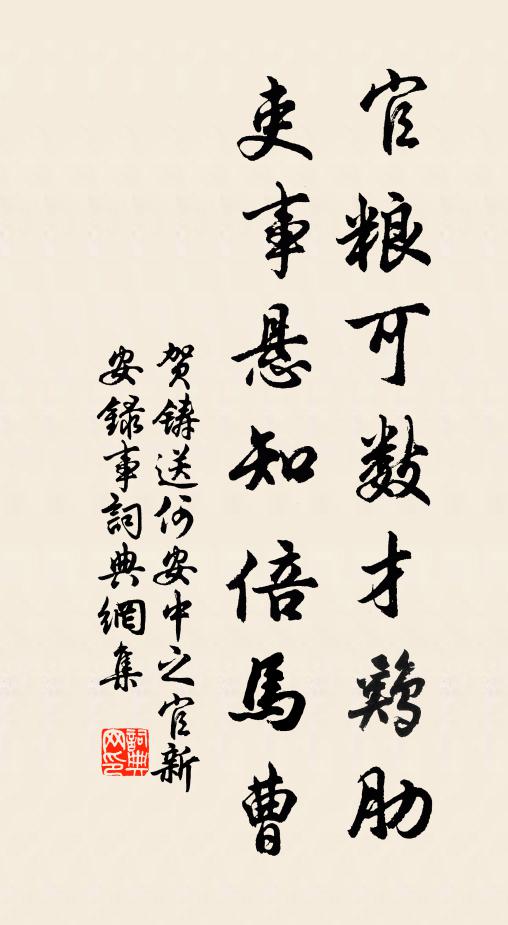 官粮可數才鷄肋
吏事悬知倍馬曹
贺鑄送何安中之官新
安録事詞典網集
詞典网印